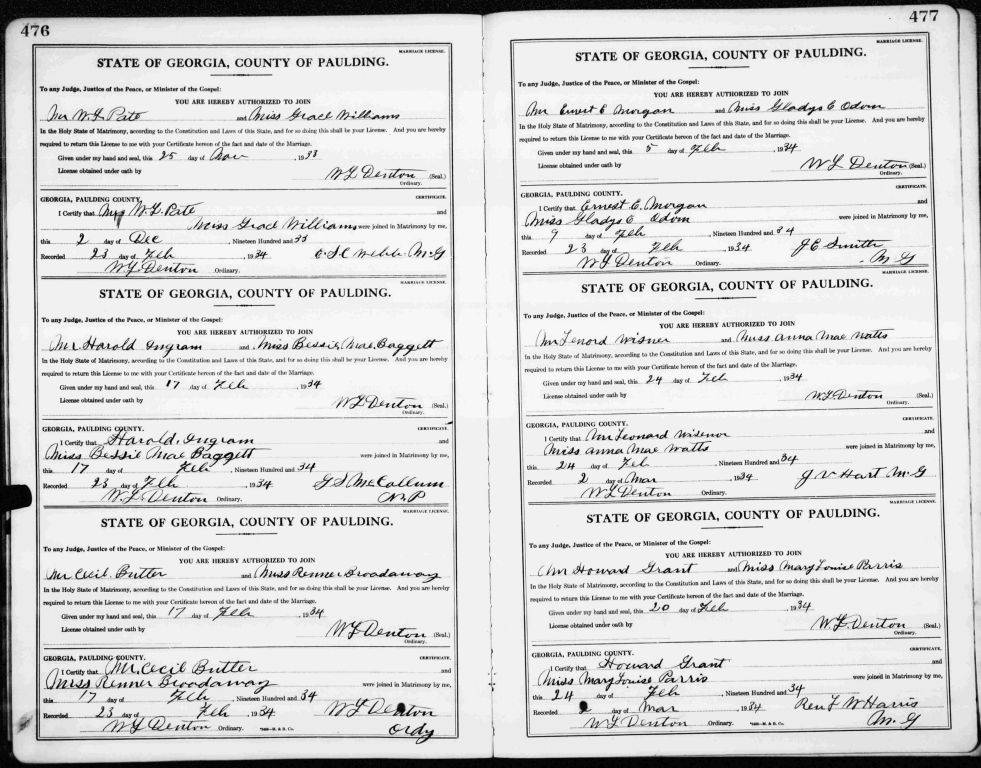 476
MARRIAGE LICENSE.
STATE OF GEORGIA, COUNTY OF PAULDING.
To any Judge, Justice of the Peace, or Minister of the Gospel:
YOU ARE HEREBY AUTHORIZED TO JOIN
Mr W. G. Pate and Miss Grace Williams
In the Holy State of Matrimony, according to the Constitution and Laws of this State, and for so doing this shall be your License. And you are hereby
required to return this License to me with your Certificate hereon of the fact and date of the Marriage.
Given under my hand and seal, this 25 day of Nov , 1933
License obtained under oath by W G Denton (Seal.)
Ordinary.
GEORGIA, PAULDING COUNTY. CERTIFICATE.
I Certify that W. G. Pate and
Miss Grace Williams were joined in Matrimony by me,
this 2 day of Dec , Nineteen Hundred and 33
Recorded 23 day of Feb , 1934 Webb M.G
W G Denton Ordinary.
MARRIAGE LICENSE.
STATE OF GEORGIA, COUNTY OF PAULDING.
To any Judge, Justice of the Peace, or Minister of the Gospel:
YOU ARE HEREBY AUTHORIZED TO JOIN
Mr Harold Ingram and Miss Bessie Mae Baggett
In the Holy State of Matrimony, according to the Constitution and Laws of this State, and for so doing this shall be your License. And you are hereby
required to return this License to me with your Certificate hereon of the fact and date of the Marriage.
Given under my hand and seal, this 17 day of Feb , 1934
License obtained under oath by W G Denton (Seal.)
Ordinary.
GEORGIA, PAULDING COUNTY. CERTIFICATE.
I Certify that Harold Ingram and
Miss Bessie Mae Baggett were joined in Matrimony by me,
this 17 day of Feb , Nineteen Hundred and 34
Recorded 23 day of Feb , 1934 McCollum
W. G. Denton Ordinary N.P
MARRIAGE LICENSE.
STATE OF GEORGIA, COUNTY OF PAULDING.
To any Judge, Justice of the Peace, or Minister of the Gospel:
YOU ARE HEREBY AUTHORIZED TO JOIN
Mr Cecil Butler and Miss Renner Broadaway
In the Holy State of Matrimony, according to the Constitution and Laws of this State, and for so doing this shall be your License. And you are hereby
required to return this License to me with your Certificate hereon of the fact and date of the Marriage.
Given under my hand and seal, this 17 day of Feb , 1934
License obtained under oath by W G Denton (Seal.)
Ordinary.
GEORGIA, PAULDING COUNTY. CERTIFICATE.
I Certify that Mr. Cecil Butler and
Miss Renner Broadaway were joined in Matrimony by me,
this 17 day of Feb , Nineteen Hundred and 34
Recorded 23 day of Feb , 1934 W G Denton
W G Denton Ordinary. Ordy
477
MARRIAGE LICENSE.
STATE OF GEORGIA, COUNTY OF PAULDING.
To any Judge, Justice of the Peace, or Minister of the Gospel:
YOU ARE HEREBY AUTHORIZED TO JOIN
Mr Ernest E Morgan and Miss Gladys E Odom
In the Holy State of Matrimony, according to the Constitution and Laws of this State, and for so doing this shall be your License. And you are hereby
required to return this License to me with your Certificate hereon of the fact and date of the Marriage.
Given under my hand and seal, this 5 day of Feb , 1934
License obtained under oath by W G Denton (Seal.)
Ordinary.
GEORGIA, PAULDING COUNTY. CERTIFICATE.
I Certify that Ernest E. Morgan and
Miss Gladys E Odom were joined in Matrimony by me,
this 9 day of Feb , Nineteen Hundred and 34
Recorded 23 day of Feb , 1934 J E Smith
W G Denton Ordinary. M.G
MARRIAGE LICENSE.
STATE OF GEORGIA, COUNTY OF PAULDING.
To any Judge, Justice of the Peace, or Minister of the Gospel:
YOU ARE HEREBY AUTHORIZED TO JOIN
Mr Lenord Wisner and Miss Anna Mae Watts
In the Holy State of Matrimony, according to the Constitution and Laws of this State, and for so doing this shall be your License. And you are hereby
required to return this License to me with your Certificate hereon of the fact and date of the Marriage.
Given under my hand and seal, this 24 day of Feb , 1934
License obtained under oath by W. G Denton (Seal.)
Ordinary.
GEORGIA, PAULDING COUNTY. CERTIFICATE.
I Certify that Mr Leonard Wisenor and
Miss Anna Mae Watts were joined in Matrimony by me,
this 24 day of Feb , Nineteen Hundred and 34
Recorded 2 day of Mar , 1934 J V Hart M.G
W G Denton Ordinary.
MARRIAGE LICENSE.
STATE OF GEORGIA, COUNTY OF PAULDING.
To any Judge, Justice of the Peace, or Minister of the Gospel:
YOU ARE HEREBY AUTHORIZED TO JOIN
Mr Howard Grant and Miss Mary Louise Parris
In the Holy State of Matrimony, according to the Constitution and Laws of this State, and for so doing this shall be your License. And you are hereby
required to return this License to me with your Certificate hereon of the fact and date of the Marriage.
Given under my hand and seal, this 20 day of Feb , 1934
License obtained under oath by W. G. Denton (Seal.)
Ordinary.
GEORGIA, PAULDING COUNTY. CERTIFICATE.
I Certify that Howard Grant and
Miss Mary Louise Parris were joined in Matrimony by me,
this 24 day of Feb , Nineteen Hundred and 34
Recorded 2 day of Mar , 1934 W Harris
W G Denton Ordinary. M.G